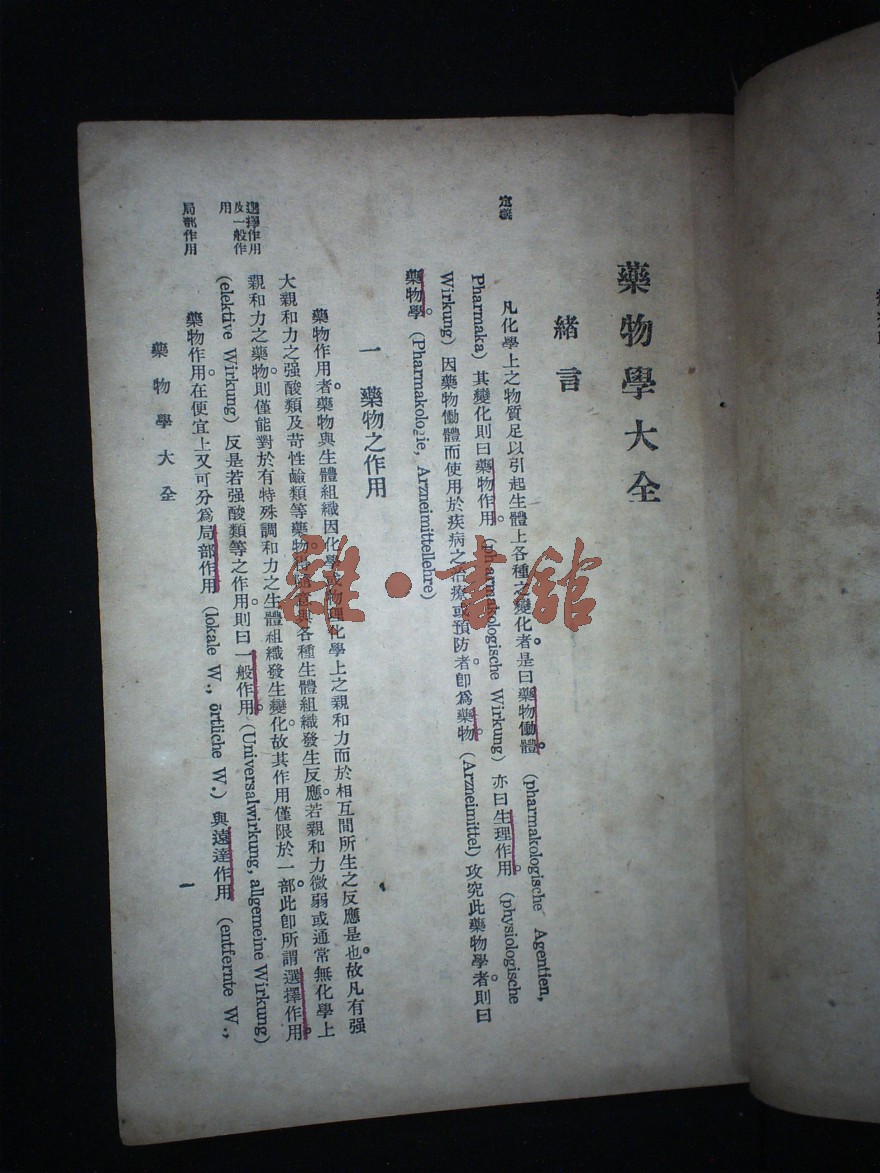 藥物學大全
緒言
定義
凡化學上之物質足以引起生體上各種之變化者。是曰藥物働體。(pharmakologische Agentien,
Pharmaka) 其變化則曰藥物作用。(pharmakologische Wirkung) 亦曰生理作用。(physiologische
Wirkung) 因藥物働體而使用於疾病之治療或預防者。卽爲藥物。(Arzneimittel) 攻究此藥物學者。則曰
藥物學。(Pharmakologie, Arzneimittellehre)
一 藥物之作用
藥物作用者。藥物與生體組織因化學或物理化學上之親和力而於相互間所生之反應是也。故凡有强
大親和力之强酸類及苛性鹼類等藥物。 各種生體組織發生反應。若親和力微弱或通常無化學上
親和力之藥物。則僅能對於有特殊調和力之生體組織發生變化。故其作用僅限於一部。此卽所謂選擇作用。
選擇作用
及一般作
用
(elektive Wirkung) 反是若强酸類等之作用。則曰一般作用。(Universalwirkung, allgemeine Wirkung)
局部作用
藥物作用。在便宜上又可分爲局部作用 (lokale W., örtliche W.) 與遠達作用 (entfernte W.,
藥物學大全
一
雜·書館